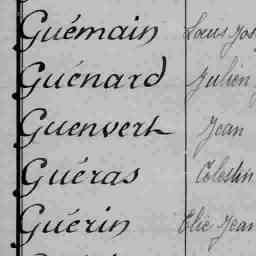 Guémain Louis Jos
Guénard Julien
Guenvert Jean
Guéras Célestin
Guérin Elie Jean